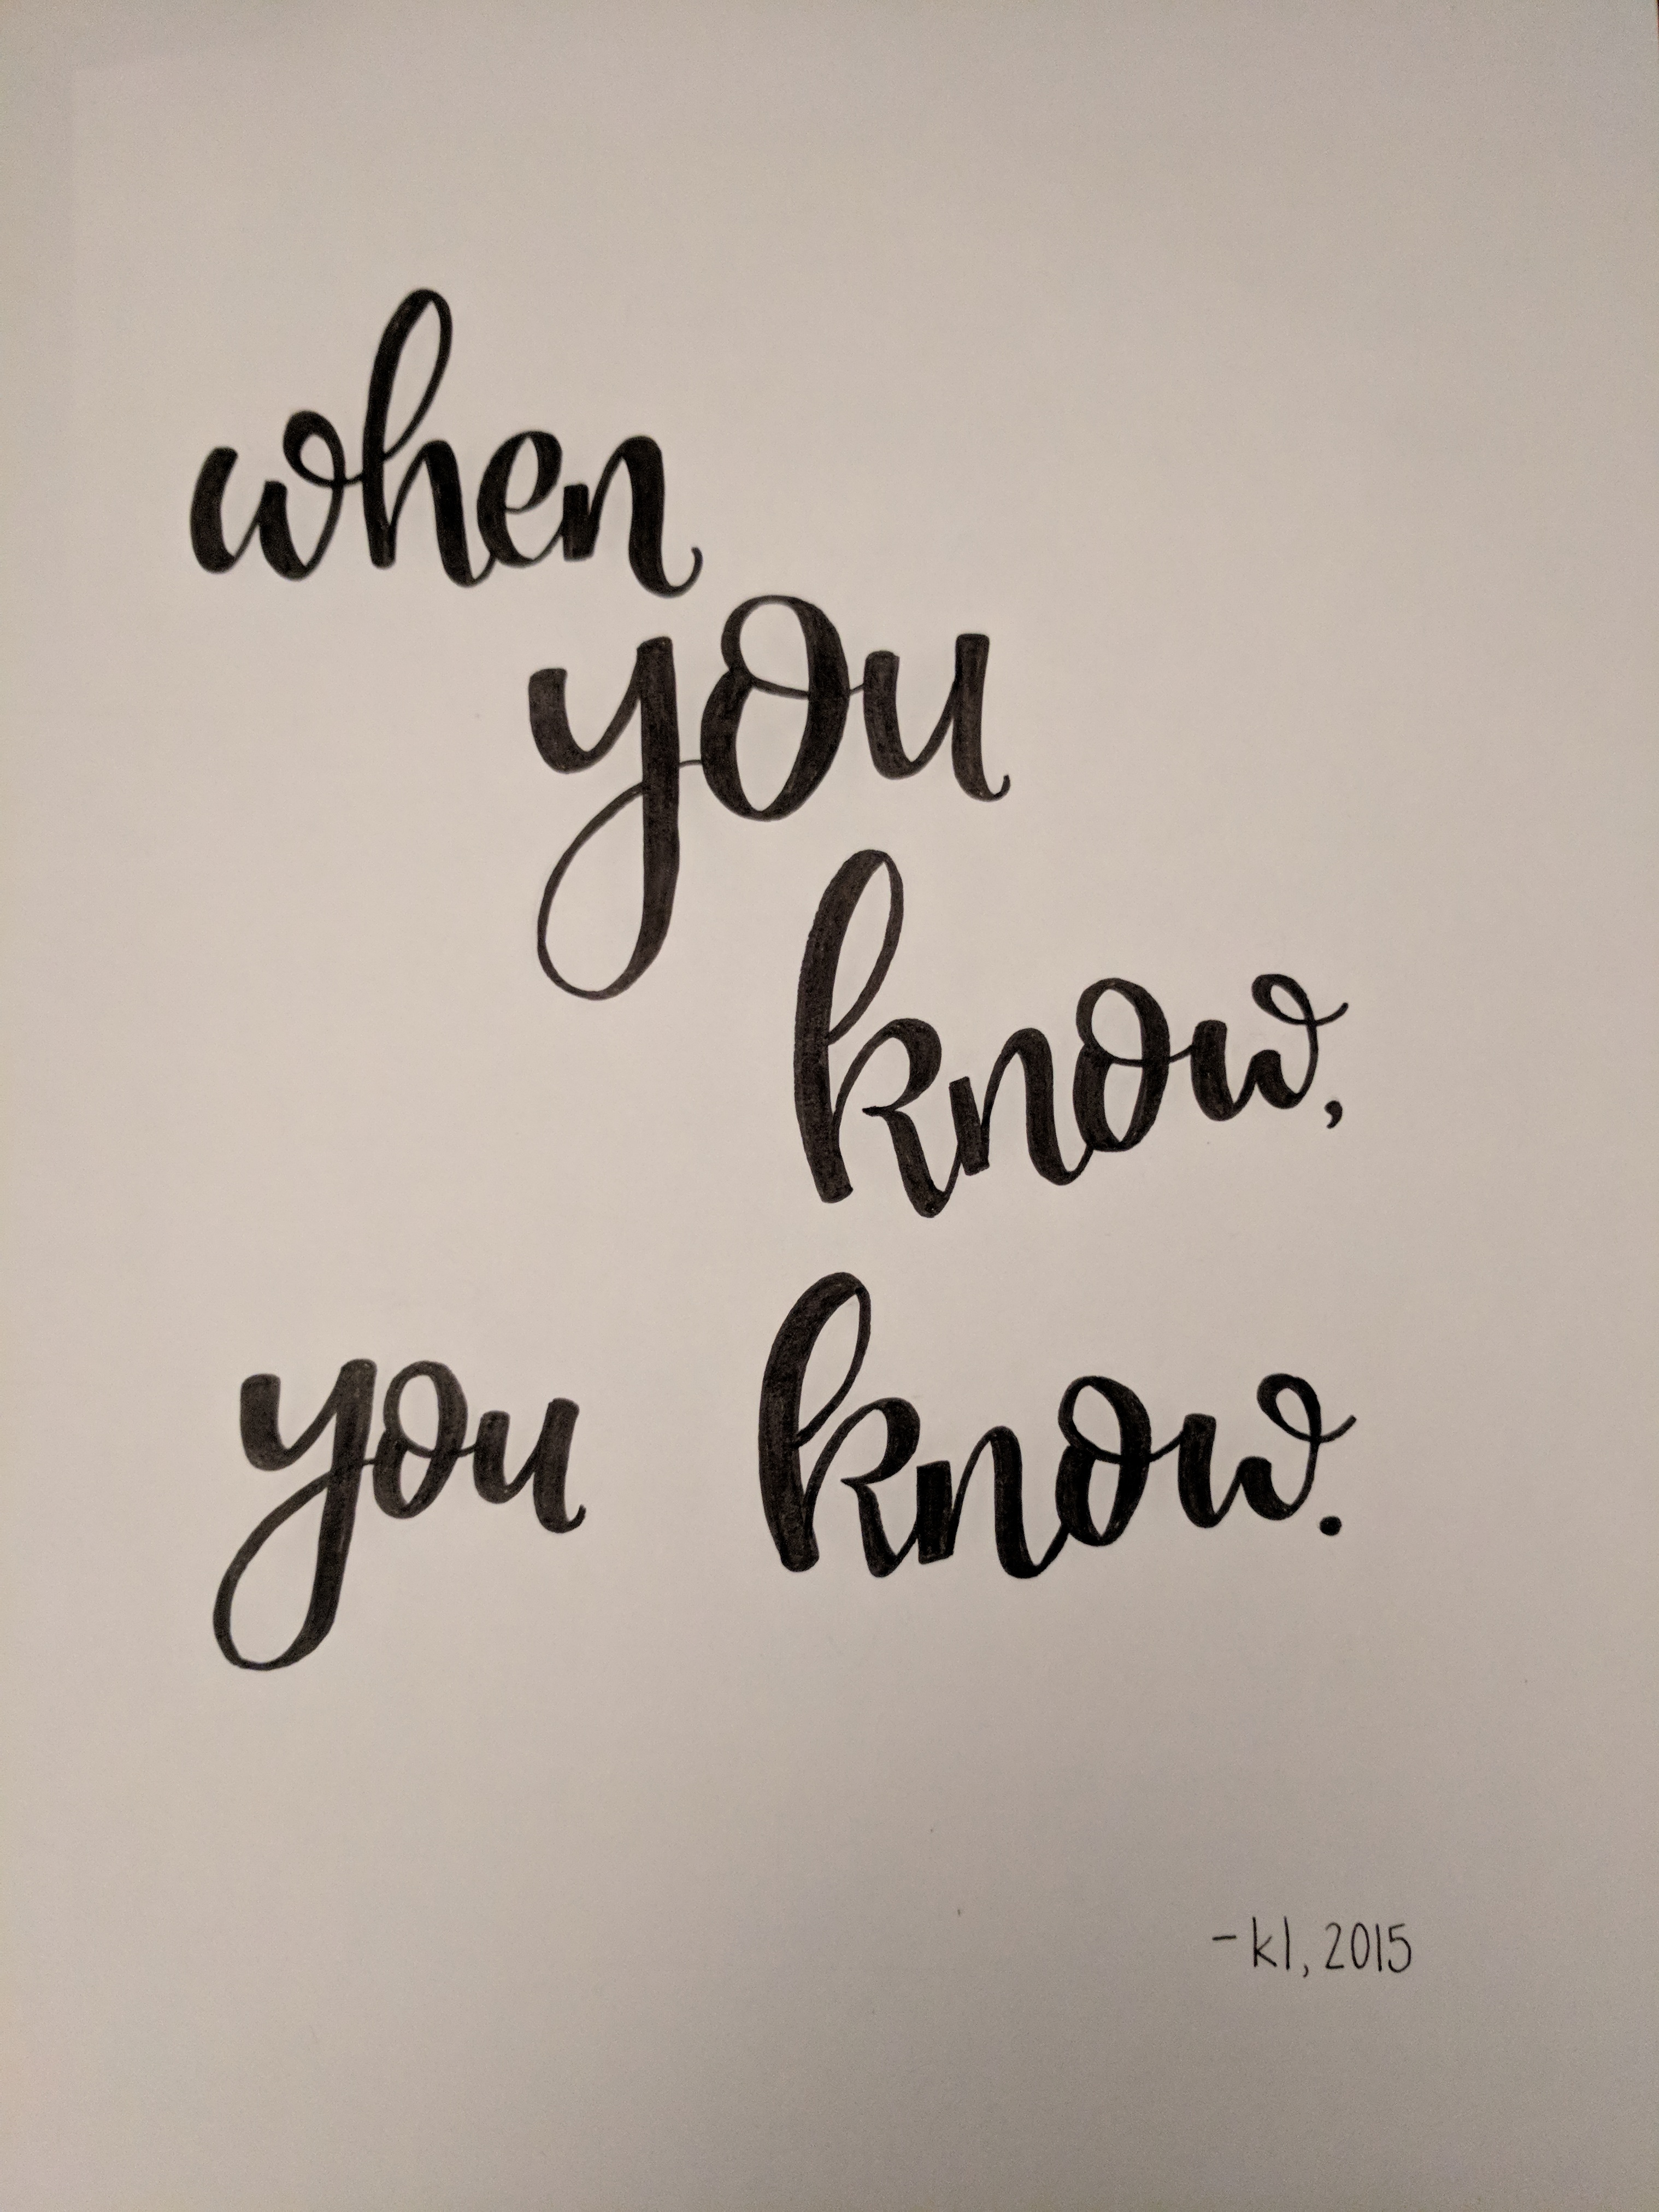 when
you
know,
you know.
-kl, 2015